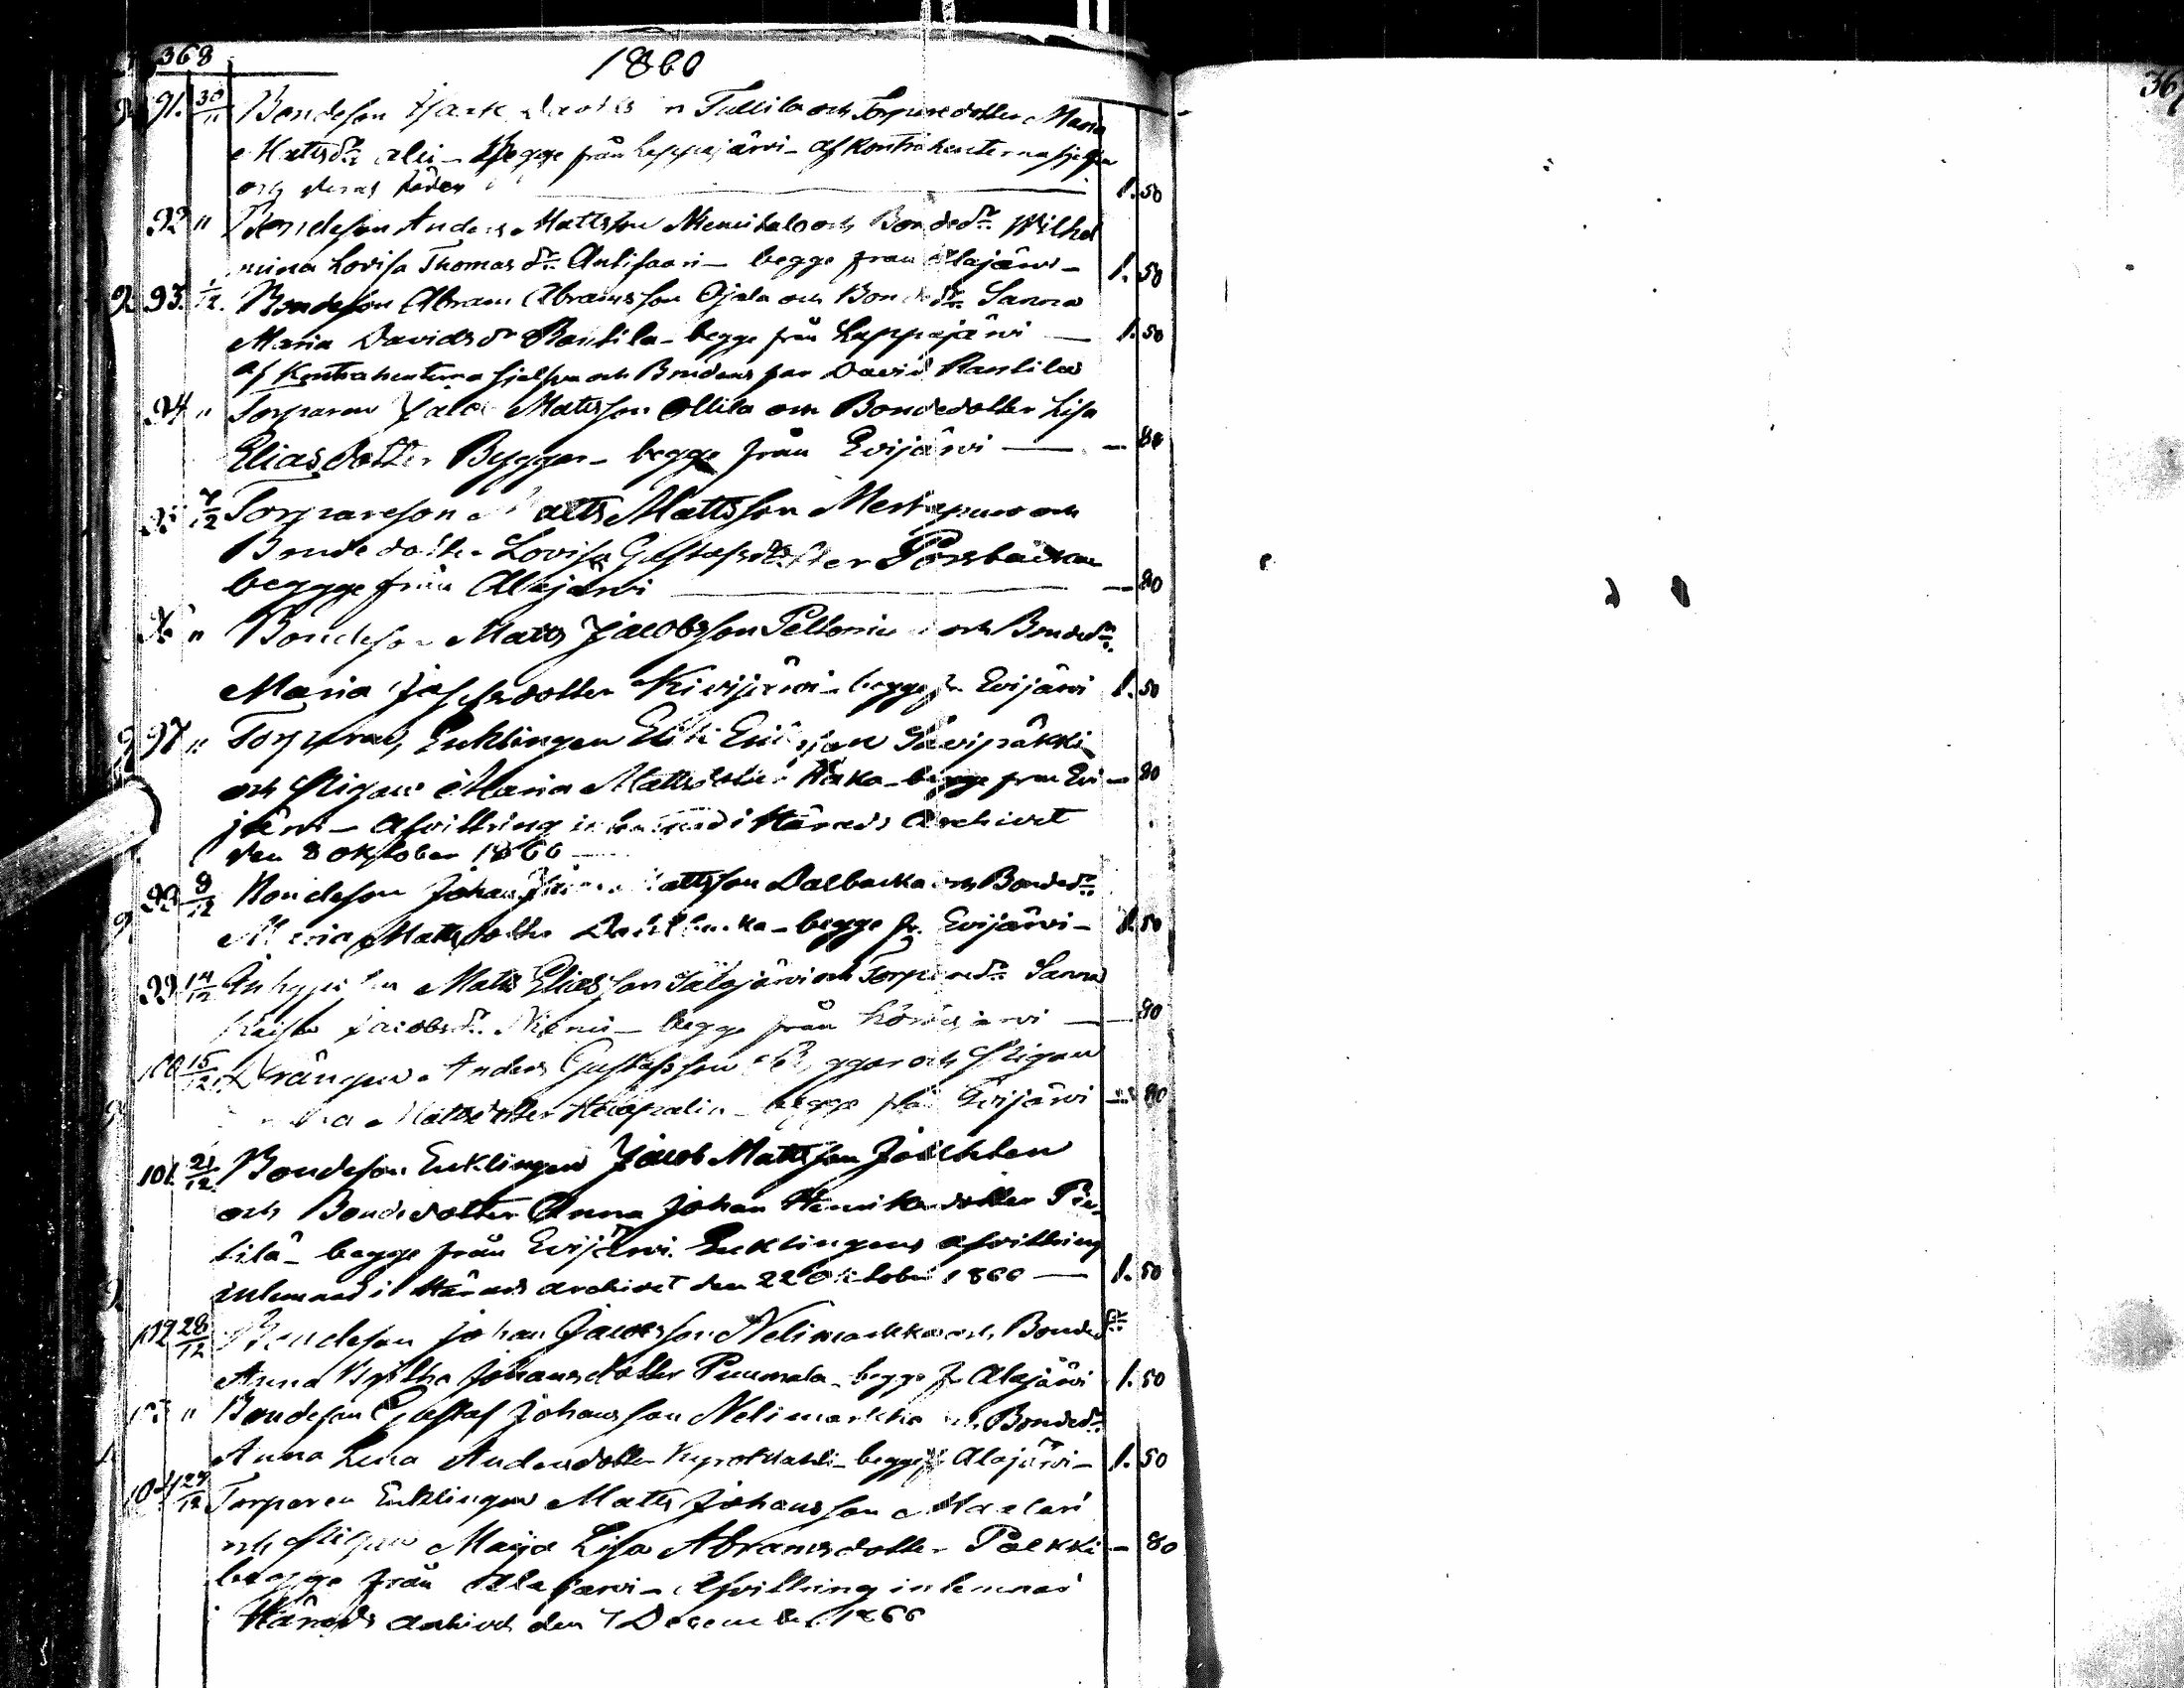 368
1860
91. 30/11 Bondeson Isaak Davids n Tallila och Torparedotter Maria
Mattsdr – Begge från Lappajärvi – af Kontrahenterna sjelfva
och deras fäder 1. 50
92 " Bondeson Anders Mattsson Niemikalo och Bondedr Wilhel
mina Lovisa Thomasdr Antisaari – begge från Alajärvi – 1. 50
93. 1/12. Bondeson Abram Abramsson Ojala och Bondedr Sanna
Maria Davidsdr Rantila – begge från Lappajärvi — 1. 50
af Kontrahenterna sjelfva och Brudens far David Rantila
94 " Torparen Jakob Mattsson Ollila och Bondedotter Lisa
Eliasdotter Byggar – begge från Evijärvi — – 80
95 7/12 Torpareson Matts Mattsson och
Bondedotter Lovisa Gustafsdotter
begge från Alajärvi — 80
96 " Bondeson Matts Jacobsson och Bondedr
Maria Josefsdotter Kivijärvi – begge fr Evijärvi 1. 50
97 " Torparen, Enklingen Eriksson Savipäkki
och Pigan Maria Mattsdotter – begge från Evi – 80
järvi – Afvittring inlemnad i Härads Archivet
den 8 Oktober 1860 —
98 9/12 Bondeson Johan Mattsson Dalbacka och Bondedr
Maria Mattsdotter Dahlbacka – begge fr. Evijärvi – 1. 50
99 14/12 Inhysingen Matts Eliasson Salojärvi och Torparedr Sanna
Kaisa Jacobsdr Niemi – begge från — 80
100 15/12 Drängen Anders Gustafsson Byggar och Pigan
Mattsdotter – begge från Evijärvi — 80
101. 21/12. Bondeson Enklingen Jacob Mattsson
och Bondedotter Anna Johan Henriksdotter Pen
tilä – begge från Evijärvi. Enklingens afvittring
inlemnad i Härads archivet den 22 Oktober 1860 — 1. 50
102 28/12 Bondeson Johan Jacobsson Nelimarkka och Bondedr
Anna Johansdotter Puumala – begge fr Alajärvi 1. 50
103 " Bondeson Gustaf Johansson Nelimarkka och Bondedr
Anna Lena Andersdotter – begge fr Alajärvi – 1. 50
104 29/12 Torparen Enklingen Matts Johansson
och Pigan Maija Lisa Abramsdotter Palkki – 80
begge från Alajärvi – Afvittring inlemnad
i Härads archivet den 7 December 1860